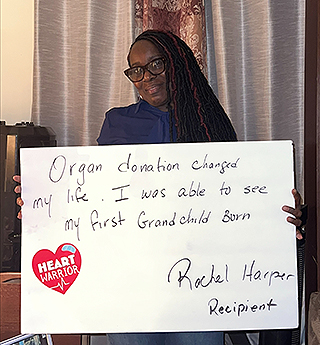 Organ donation changed
my life. I was able to see
my first Grandchild Born
HEART
WARRIOR
Rachel Harper
Recipient